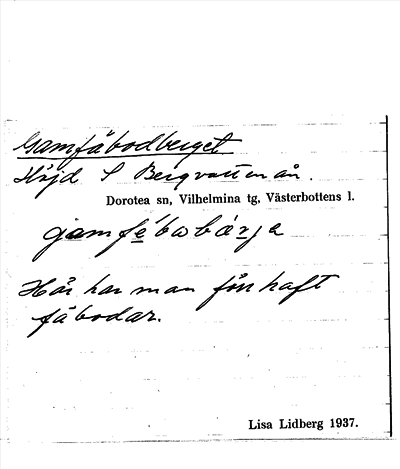 Gamfäbodberget
Höjd S Bergvattenån.
Dorotea sn, Vilhelmina tg, Västerbottens l.
gamfébobärje
Här har man förr haft
fäbodar.
Lisa Lidberg 1937.